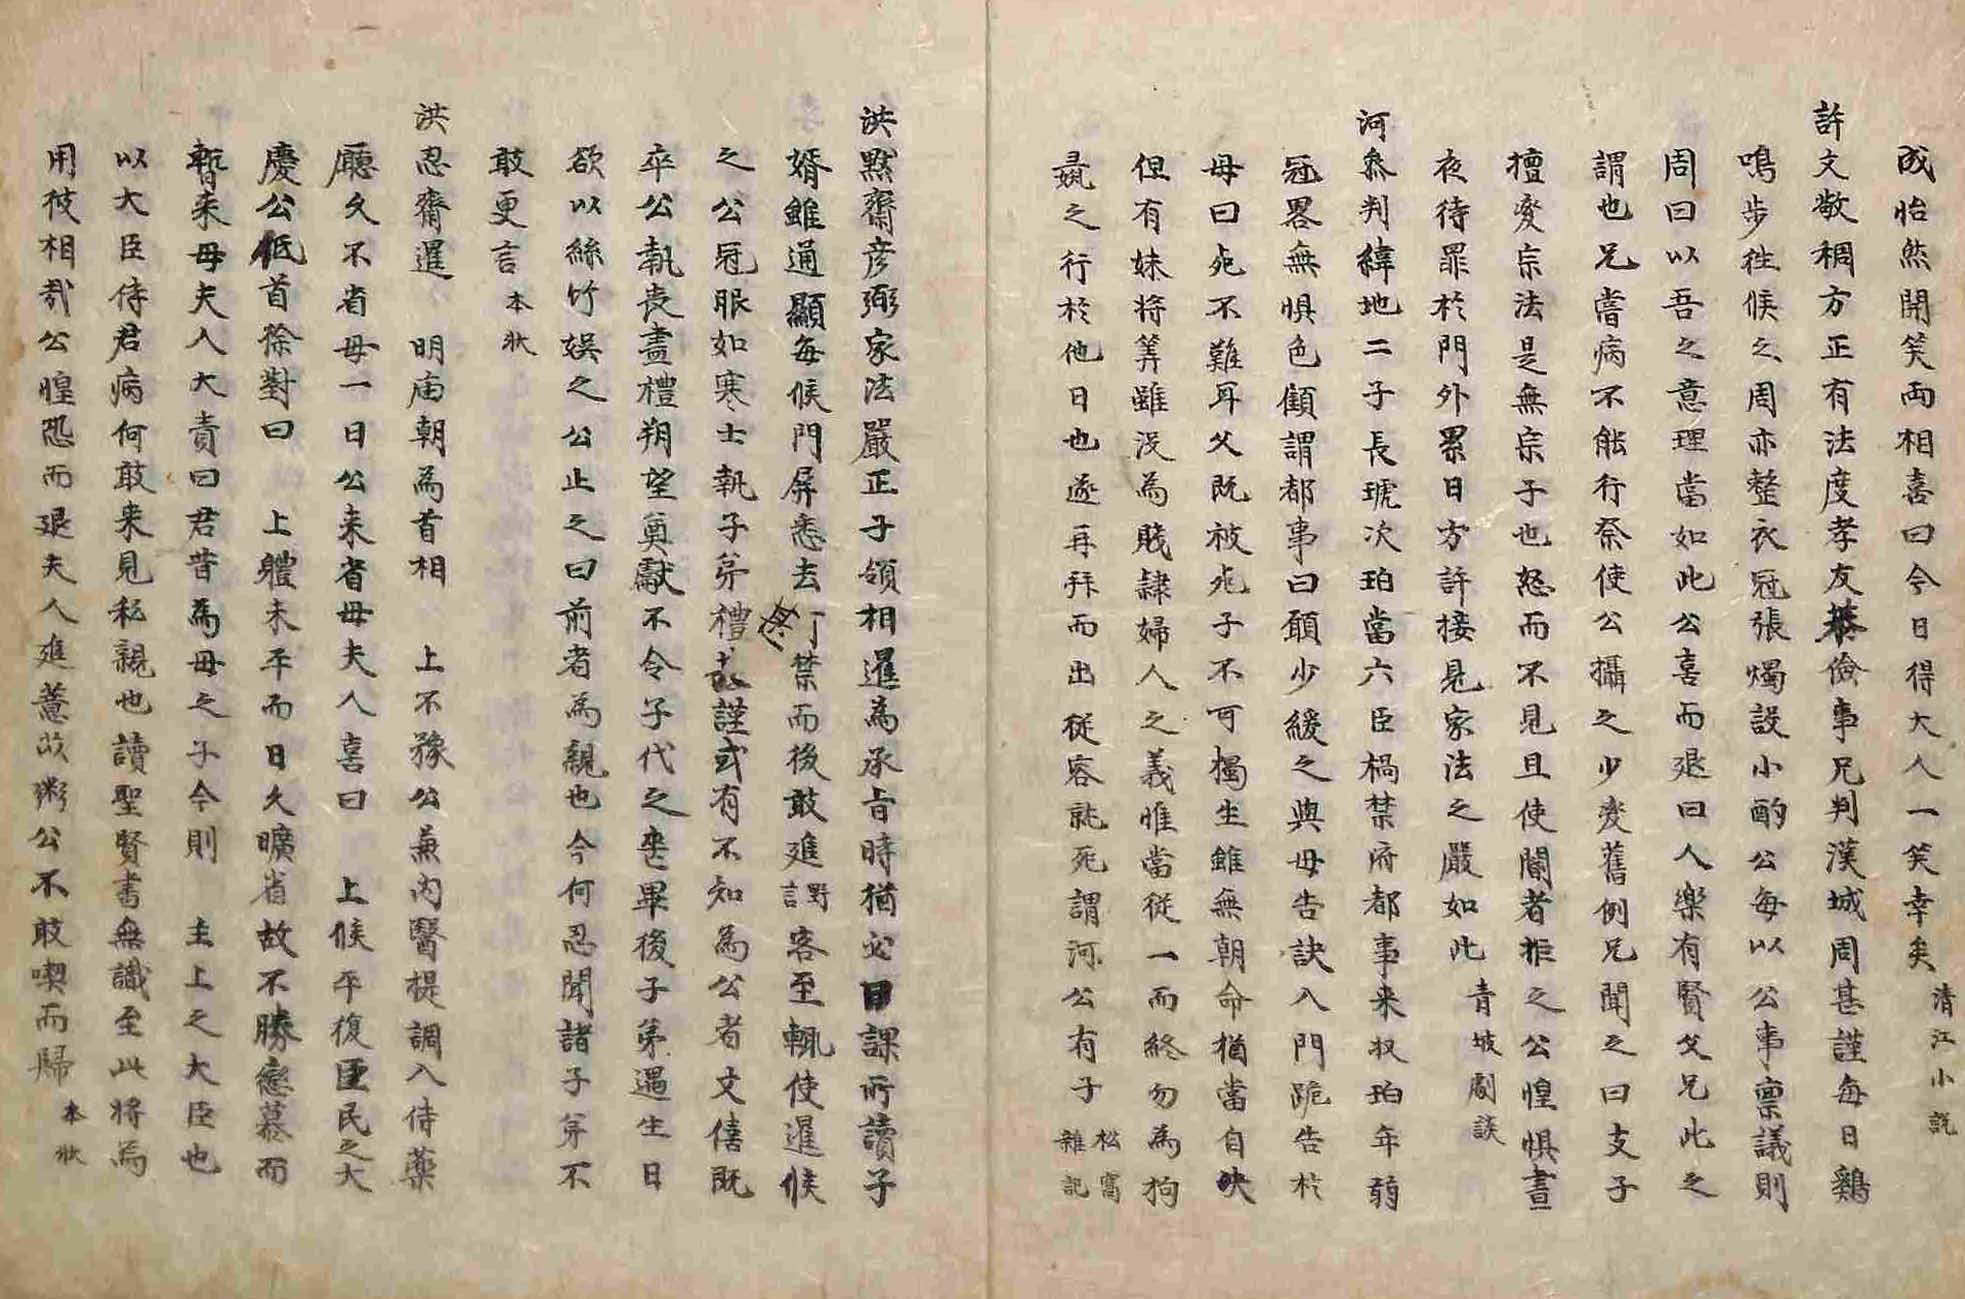 成怡然開笑両相喜曰今日得大人一笑幸矣 清江小說
許文敬稠方正有法度孝友恭儉事兄判漢城周甚謹每日鷄
鳴步徃候之周亦整衣冠張燭設小酌公每以公事禀議則
周曰以吾之意理當如此公喜而退曰人樂有賢父兄此之
謂也兄嘗病不能行祭使公攝之少変舊例兄聞之曰支子
擅変宗法是無宗子也怒而不見且使閽者拒之公惶惧晝
夜待罪於門外累日方許接見家法之嚴如此 青坡劇談
河叅判緯地二子長琥次珀當六臣禍禁府都事来収珀年弱
冠畧無惧色顧謂都事曰願少緩之與母告訣入門跪告於
母曰死不難耳父既被死子不可獨生雖無朝命猶當自决
但有妹将笄雖没為賤隷婦人之義惟當従一而終勿為狗
彘之行於他日也遂再拜而出従容就死謂河公有子 松窩雜記
洪黙齋彦弼家法嚴正子領相暹為承旨時猶必日課所讀子
婿雖通顯每候門屏悉去丁禁而後敢進野言客至輒使暹候
之公冠服如寒士執子弟禮甚謹或有不知為公者文僖既
卒公執喪盡禮朔望奠獻不令子代之喪畢後子弟遇生日
欲以絲竹娯之公止之曰前者為親也今何忍聞諸子弟不
敢更言 本狀
洪忍齋暹 明庙朝為首相 上不豫公兼内醫提調入侍藥
廳久不省母一日公来省母夫人喜曰 上候平復臣民之大
慶公低首徐對曰 上軆未平而日久曠省故不勝戀慕而
暫来母夫人大責曰君昔為母之子今則 主上之大臣也
以大臣侍君病何敢来見私親也讀聖賢書無識至此将為
用彼相哉公惶恐而退夫人進薏苡粥公不敢喫而歸 本狀